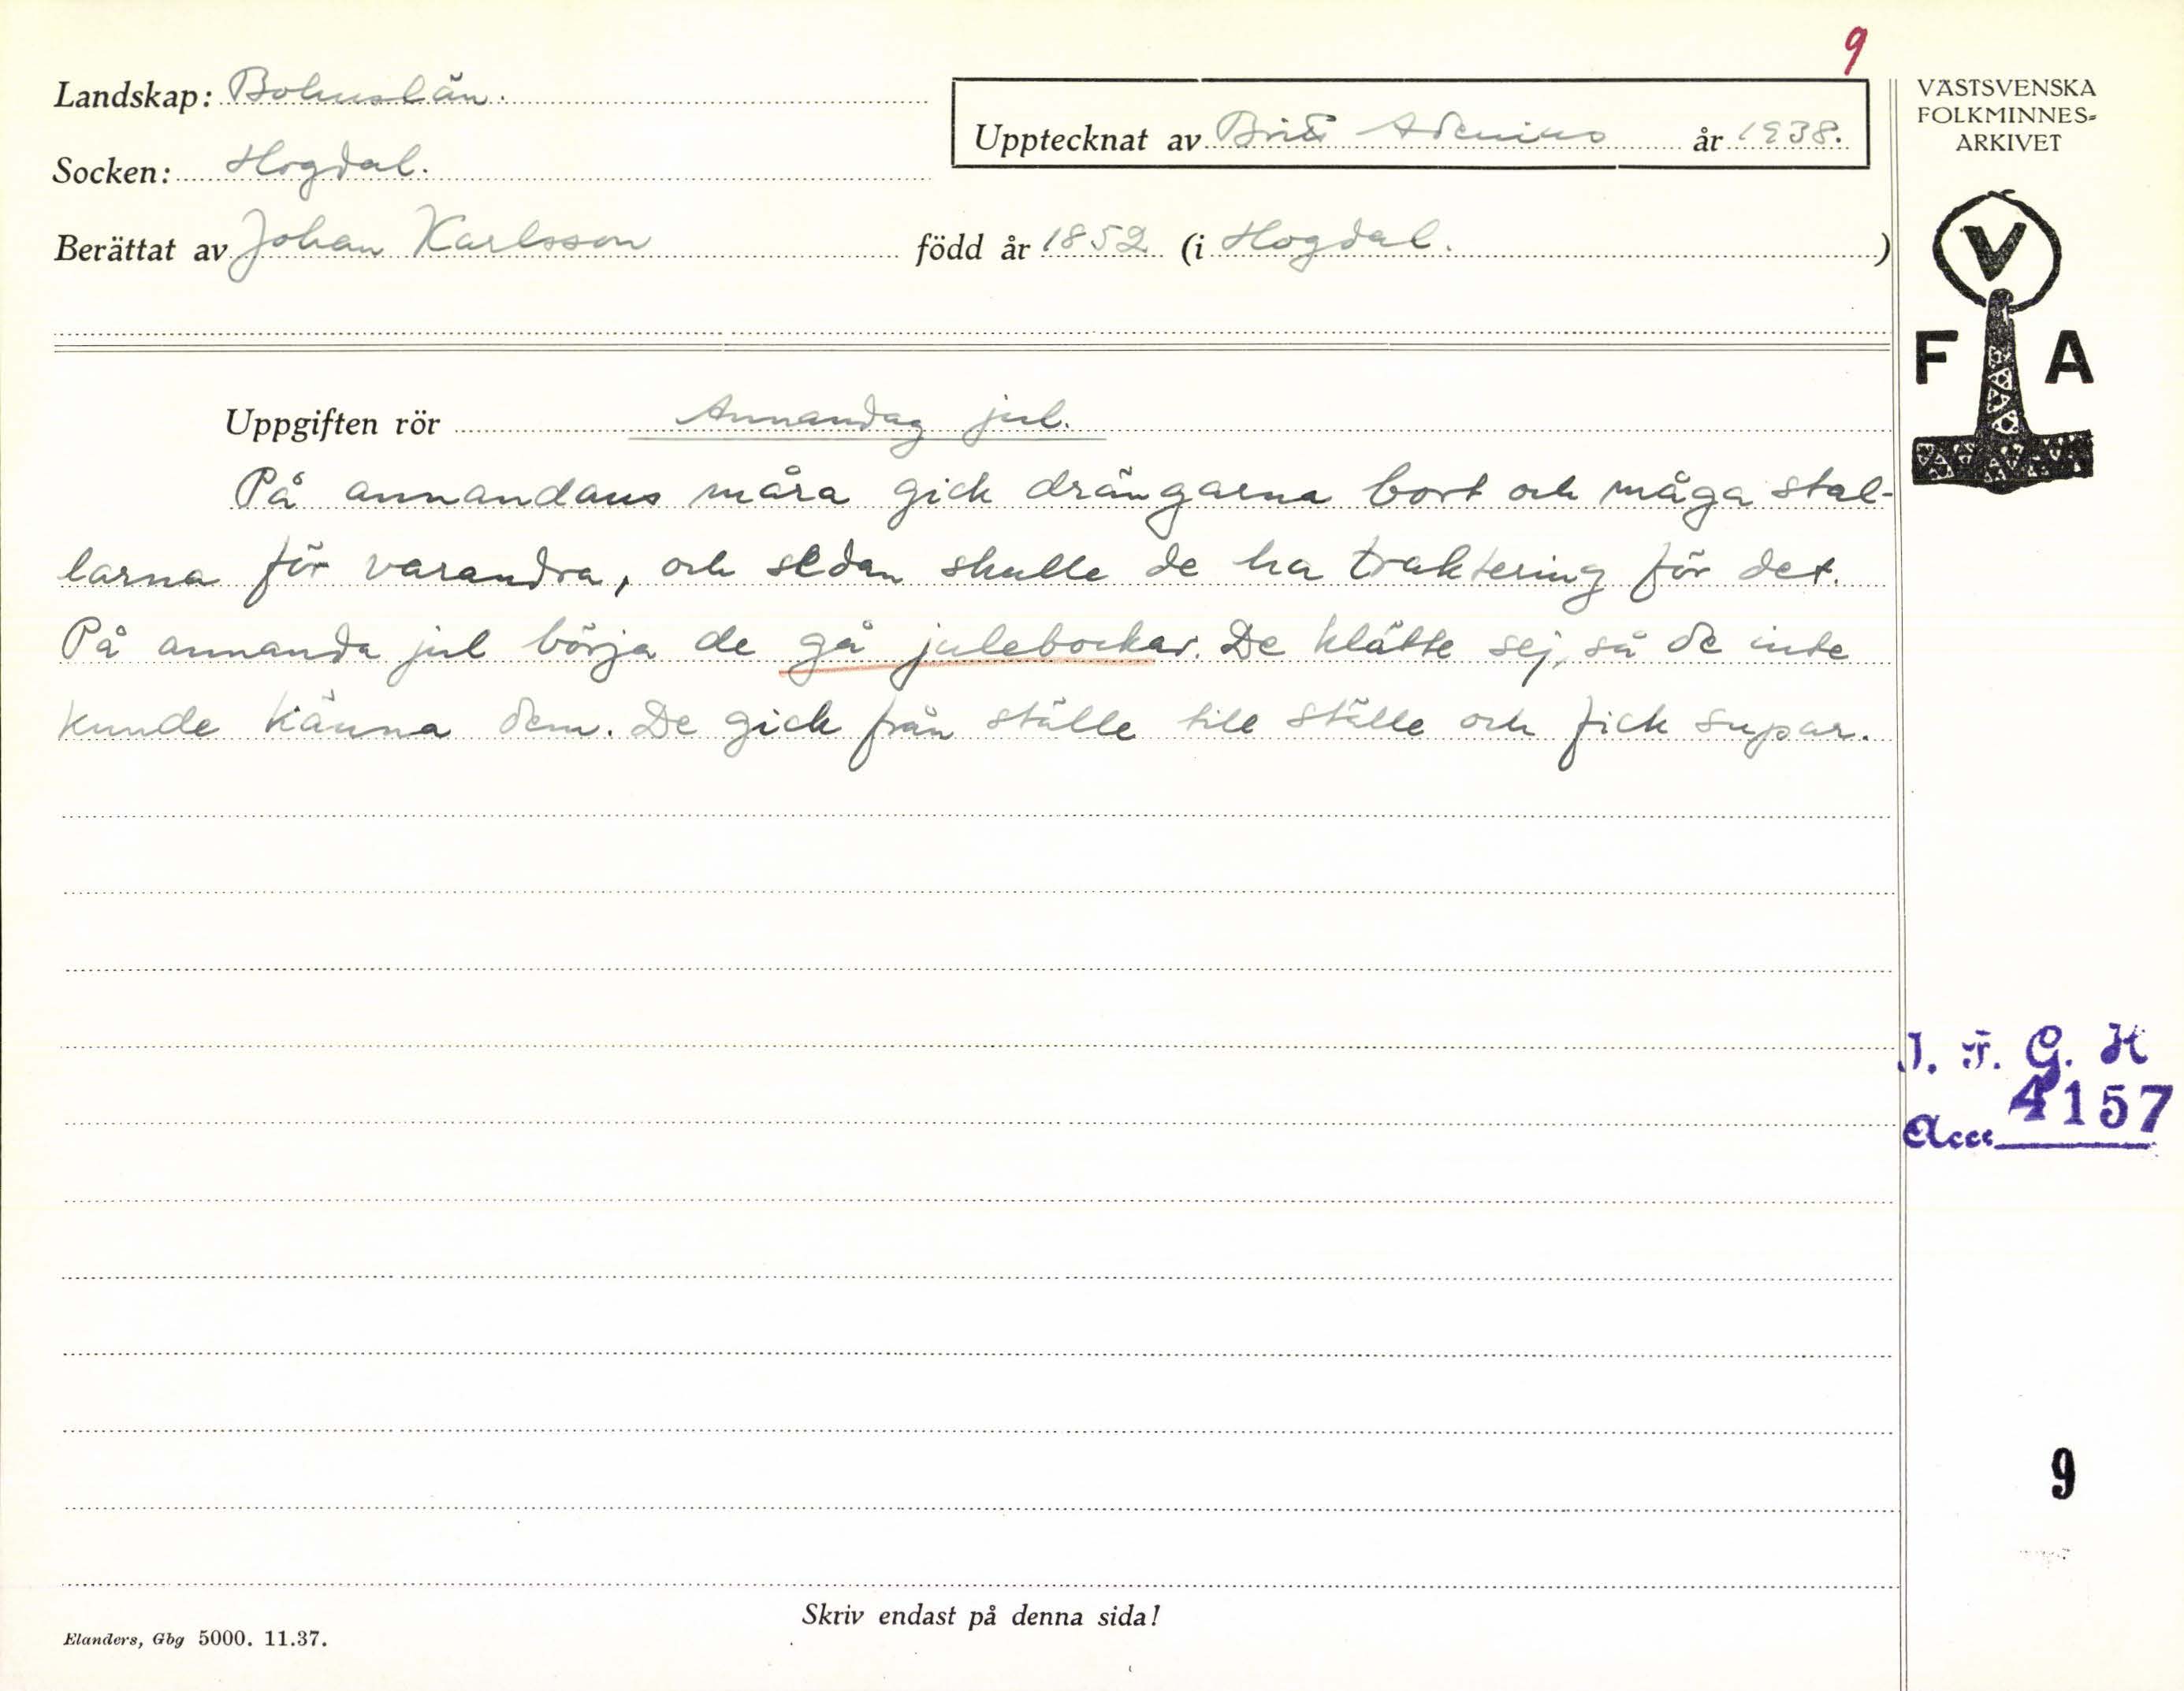 9
Landskap: Bohuslän.
Upptecknat av Brita Adenius år 1938.
Socken: Hogdal.
Berättat av Johan Karlsson född år 1852 (i Hogdal.)
VÄSTSVENSKA
FOLKMINNES-
ARKIVET
V
F A
Uppgiften rör Annandag jul.
På annandaus måra gick drängarna bort och måga stal-
larna för varandra, och sedan skulle de ha traktering för det.
På annanda jul börja de gå julebockar. De klätte sej, så de inte
kunde känna dem. De gick från ställe till ställe och fick supar.
I. F. G. H
Acc. 4157
9
Skriv endast på denna sida!
Elanders, Gbg 5000. 11.37.